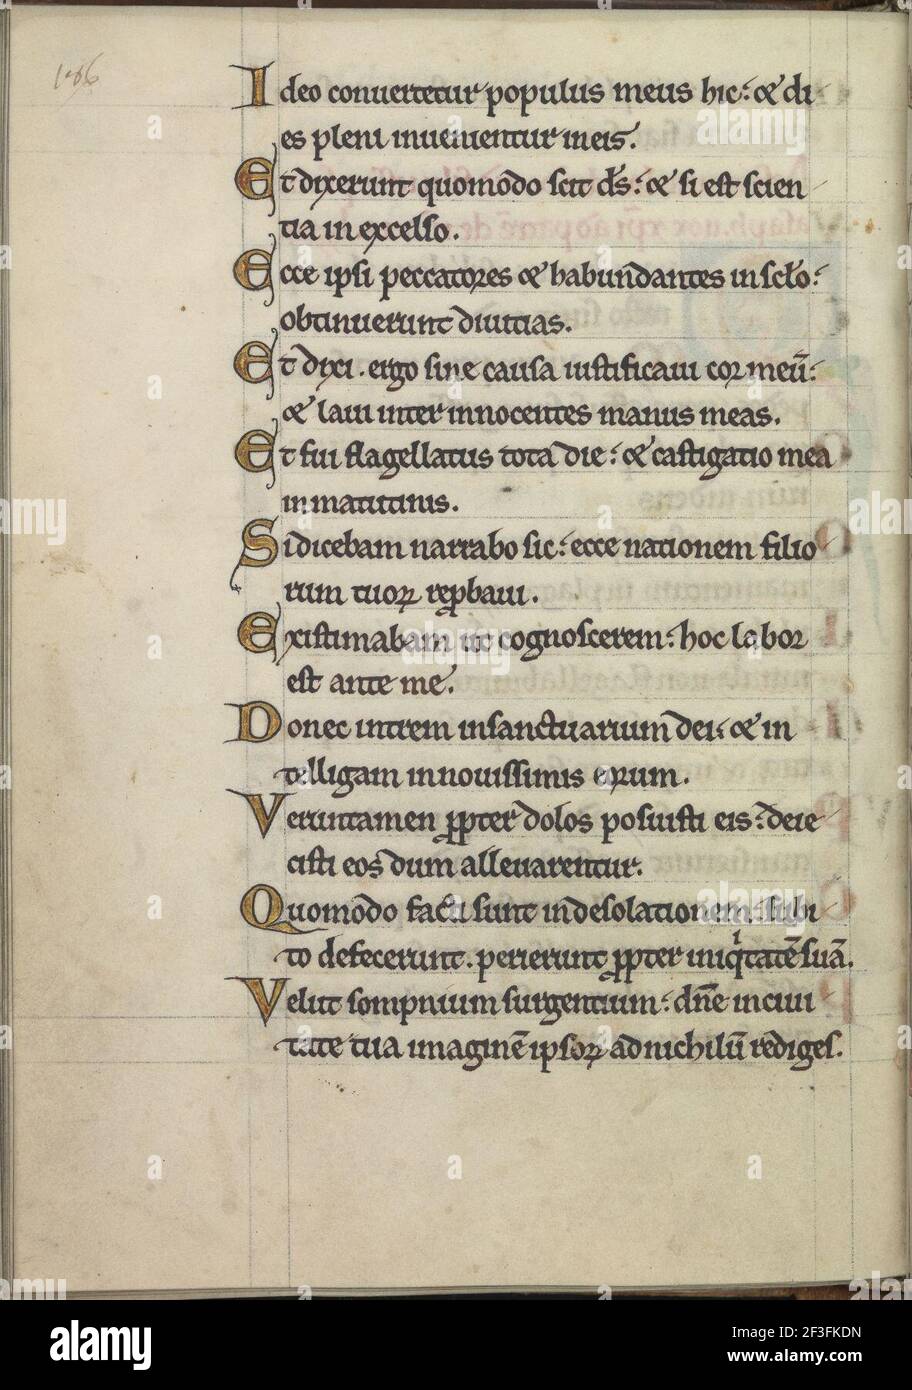 146
Ideo conuertetur populus meus hic: & di
es pleni inuenientur in eis.
Et dixerunt quomodo scit ds̄: & si est scien
tia in excelso.
Ecce ipsi peccatores & habundantes in sclo:
obtinuerunt diuitias.
Et dixi. ergo sine causa iustificaui cor meū:
& laui inter innocentes manus meas.
Et fui flagellatus tota die: & castigatio mea
in matutinis.
Si dicebam narrabo sic: ecce nationem filio
rum tuoꝝ reꝓbaui.
Existimabam ut cognoscerem: hoc labor
est ante me.
Donec intrem in sanctuarium dei: & in
telligam in nouissimis eorum.
Veruntamen ꝓpter dolos posuisti eis: deie
cisti eos dum alleuarentur.
Quomodo facti sunt in desolationem: subi
to defecerunt. perierunt ꝓpter iniqitatē suā.
Velut sompnium surgentium: dn̄e in ciui
tate tua imaginē ipsoꝝ ad nichilū rediges.
alamy
Image ID: 2F3FKDN
www.alamy.com